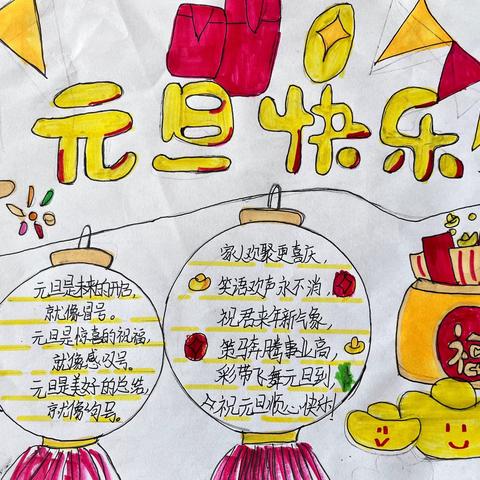 元旦快乐
元旦是未来的开启,
就像冒号。
元旦是惊喜的祝福,
就像感叹号。
元旦是美好的总结,
就像句号。
家人欢聚更喜庆,
笑语欢声永不消,
祝君来年新气象,
策马奔腾事业高,
彩带飞舞元旦到,
今祝元旦顺心快乐!
福